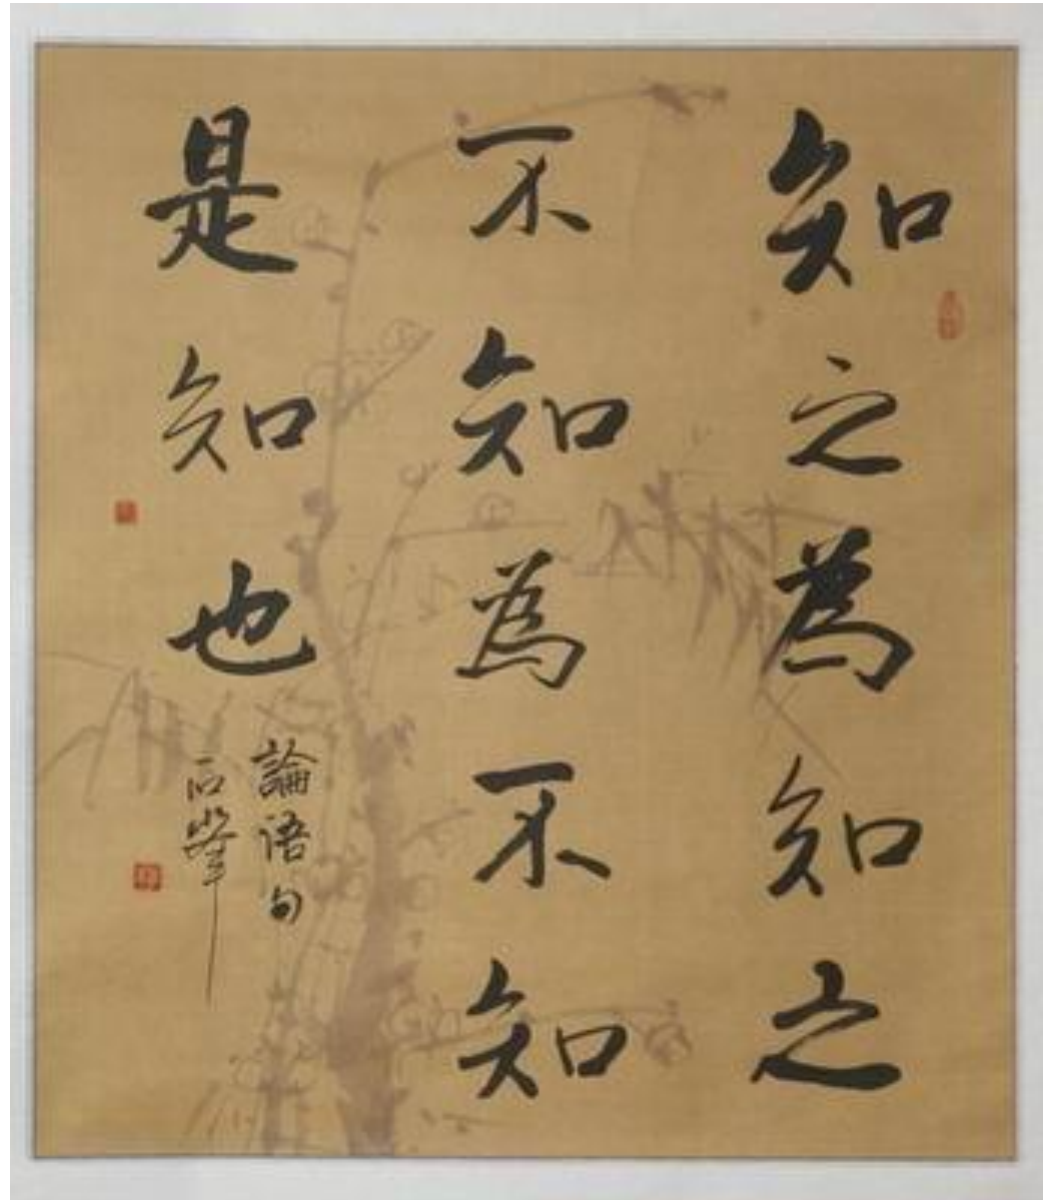 知之為知之
不知為不知
是知也
論語句
石峰